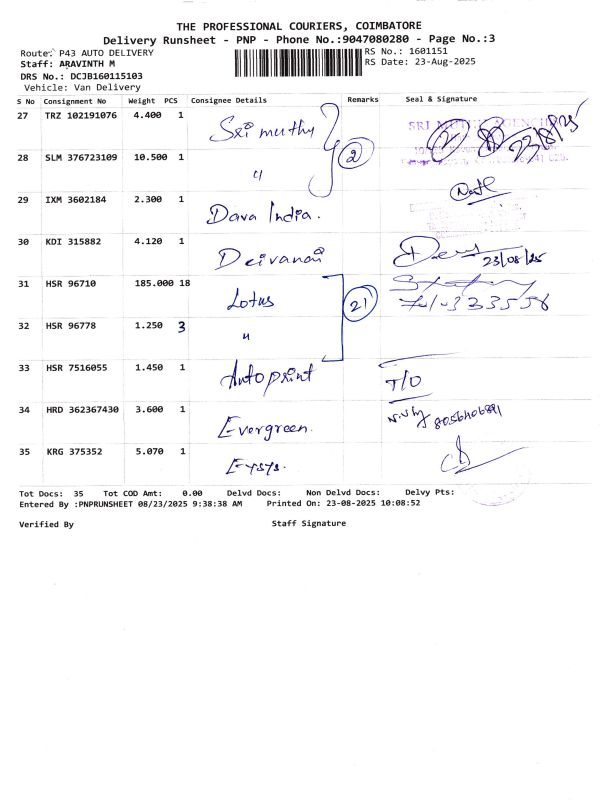 THE PROFESSIONAL COURIERS, COIMBATORE
Delivery Runsheet - PNP - Phone No.:9047080280 - Page No.:3
Route: P43 AUTO DELIVERY RS No.: 1601151
Staff: ARAVINTH M RS Date: 23-Aug-2025
DRS No.: DCJB160115103
Vehicle: Van Delivery
S No Consignment No Weight PCS Consignee Details Remarks Seal & Signature
27 TRZ 102191076 4.400 1 Sri murthy 23/8/25
28 SLM 376723109 10.500 1 " 2
29 IXM 3602184 2.300 1 Dava India.
30 KDI 315882 4.120 1 Deivanai 23/08/25
31 HSR 96710 185.000 18 Lotus 21
32 HSR 96778 1.250 3 "
33 HSR 7516055 1.450 1 Autoprint T/O
34 HRD 362367430 3.600 1 Evergreen.
35 KRG 375352 5.070 1 Eysys.
Tot Docs: 35 Tot COD Amt: 0.00 Delvd Docs: Non Delvd Docs: Delvy Pts:
Entered By :PNPRUNSHEET 08/23/2025 9:38:38 AM Printed On: 23-08-2025 10:08:52
Verified By Staff Signature